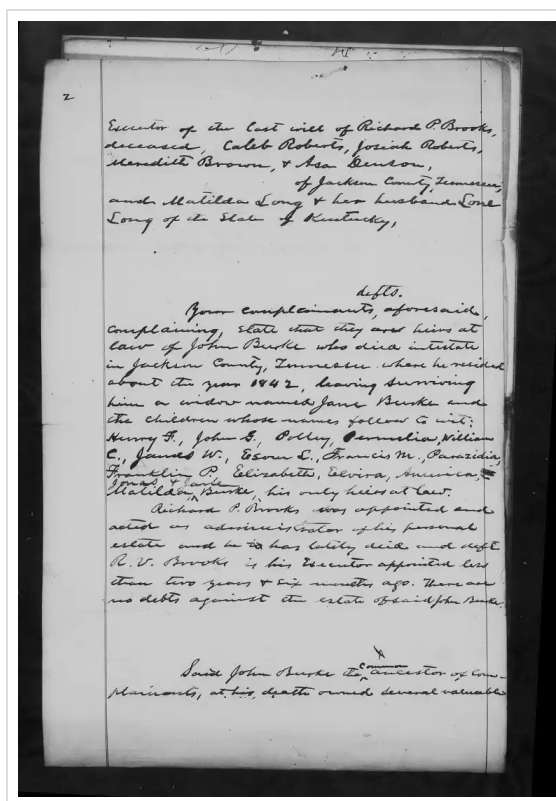 2
Executor of the last will of Richard P. Brooks,
deceased, Caleb Roberts, Josiah Roberts,
Meredith Brown, & Asa Denson,
of Jackson County, Tennessee,
and Matilda Long & her husband Long
Long of the State of Kentucky,
defts.
Your complainants, aforesaid,
complaining, state that they are heirs at
law of John Burke who died intestate
in Jackson County, Tennessee where he resided
about the year 1842, leaving surviving
him a widow named Jane Burke and
the children whose names follow to wit:
Henry F., John G., Polley, Permelia, William
C., James W., Esom L., Francis M., Parazidia,
Franklin P., Elizabeth, Elvira, America,
Jonas, & Jane
Matilda, Burke, his only heirs at law.
Richard P. Brooks was appointed and
acted as administrator of his personal
estate and he has lately died and deft
R. V. Brooks is his Executor appointed less
than two years & six months ago. There are
no debts against the estate of said John Burke.
Common
Said John Burke the ancestor of com-
plainants, at his death owned several valuable